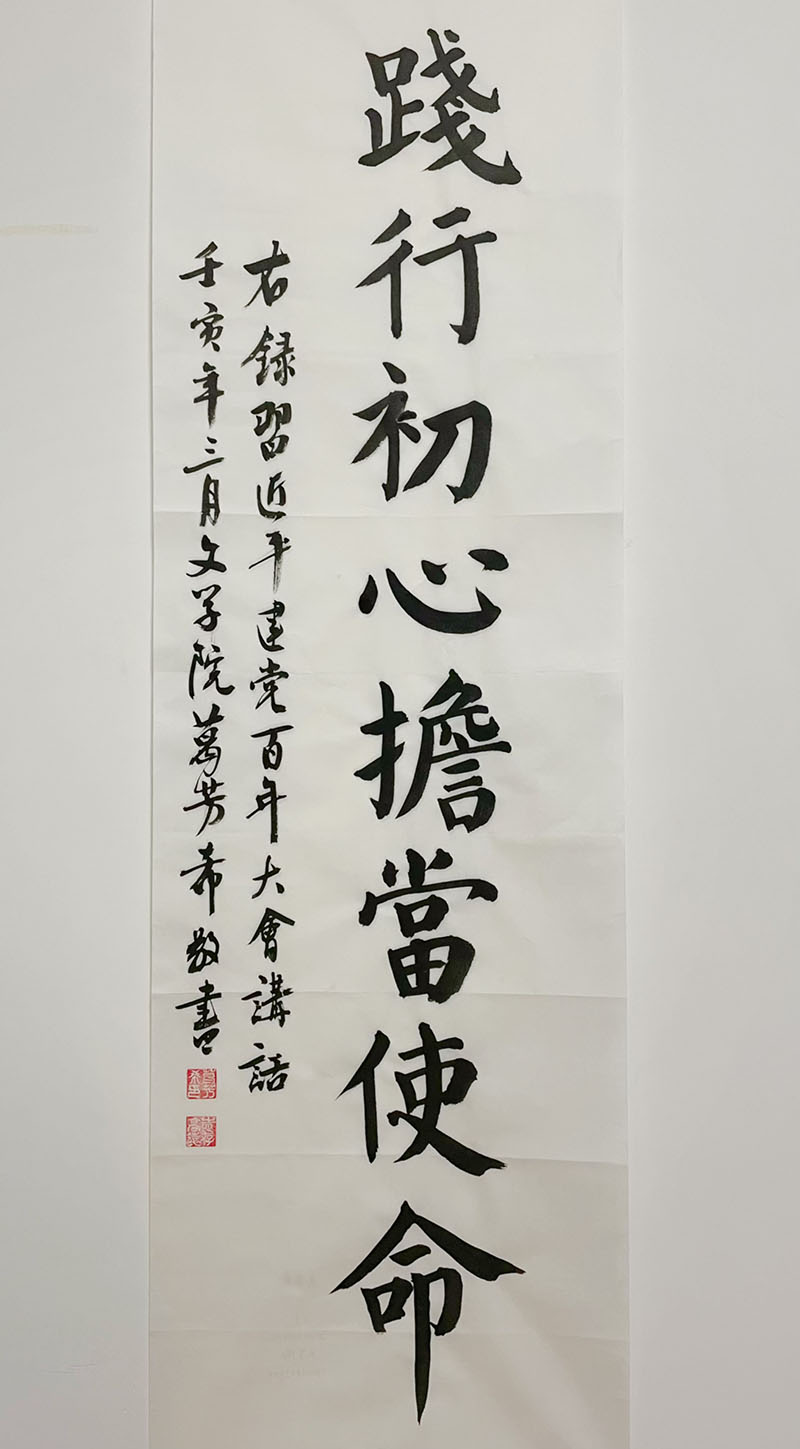 踐行初心擔當使命
右録習近平建党百年大會講話
壬寅年三月文学院萬芳希敬書